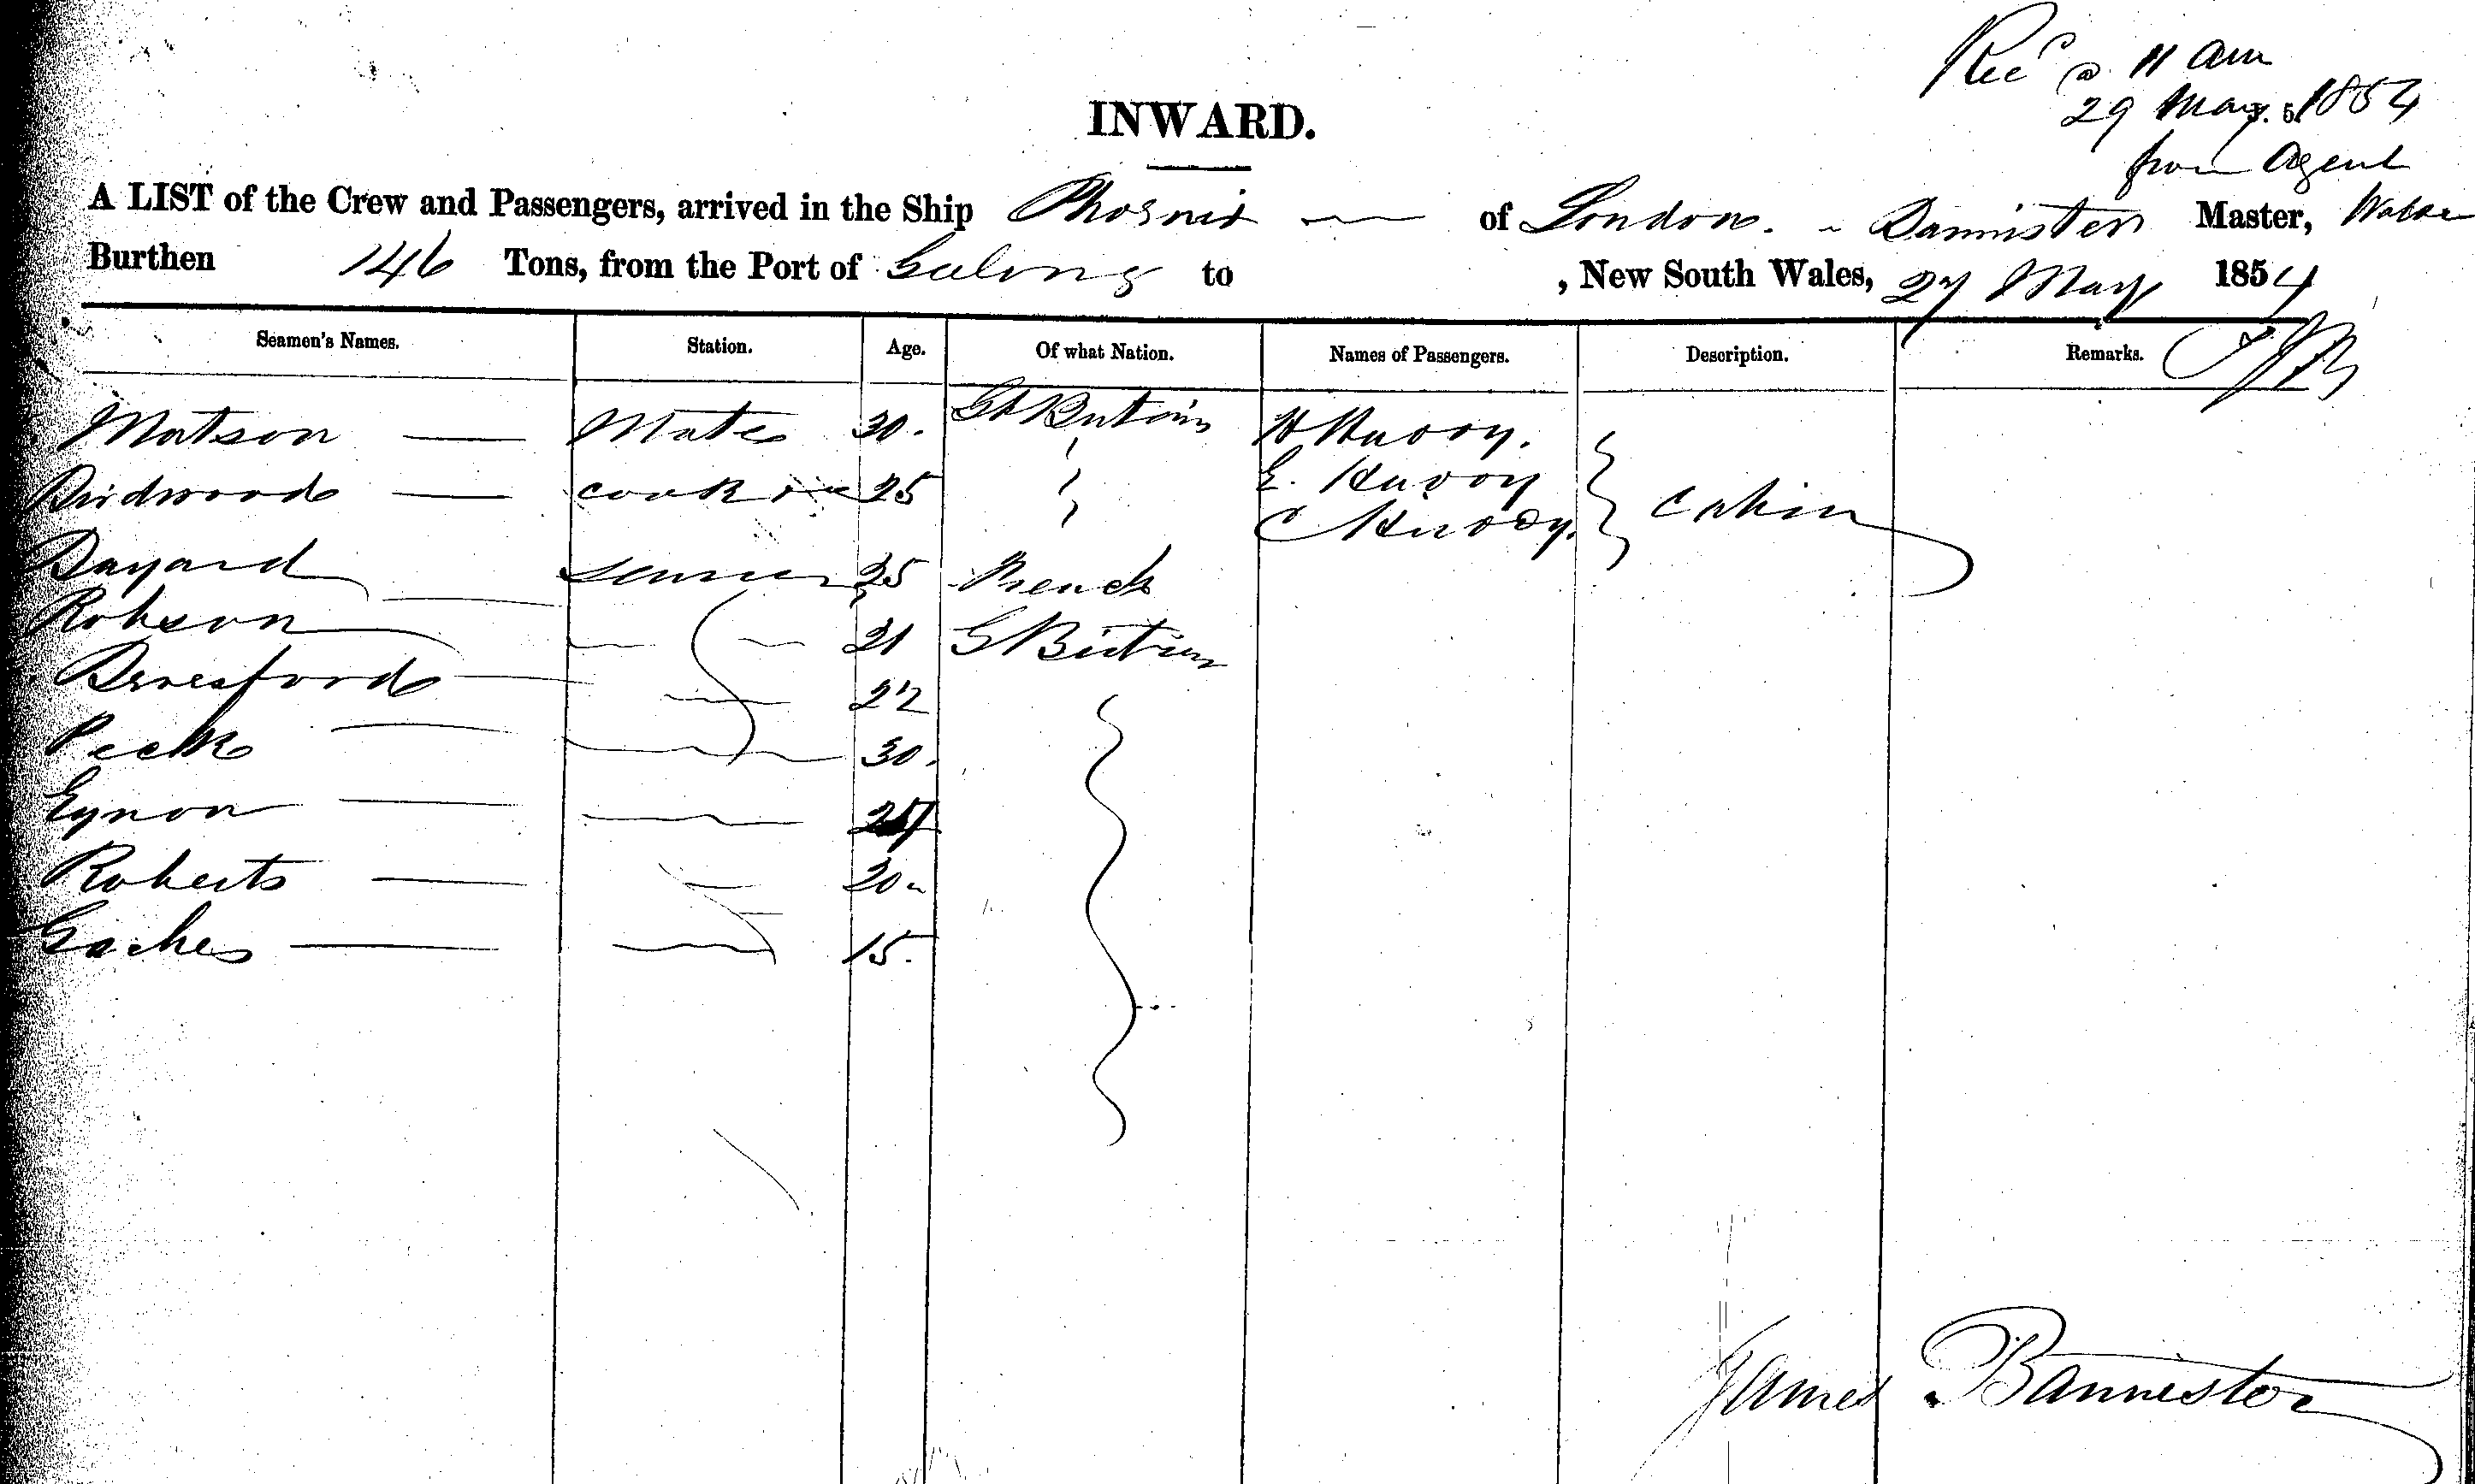 Recd @ 11 am
29 May 1854
from Agent
INWARD.
A LIST of the Crew and Passengers, arrived in the Ship Phoenix of London. Bannister Master,
Burthen 146 Tons, from the Port of Gelong to , New South Wales, 27 May 1854
Seamen's Names. Station. Age. Of what Nation. Names of Passengers. Description. Remarks.
Matson Mate 30. Gt Britain H Huvoy.
Birdwood cook 25 E. Huvoy Cabin
C Huvoy.
Bayard seaman 25 French
Robson 21 G Britain
Beresford 22
Peck 30.
Eynon
Roberts 20
Gaches 15.
James Bannister